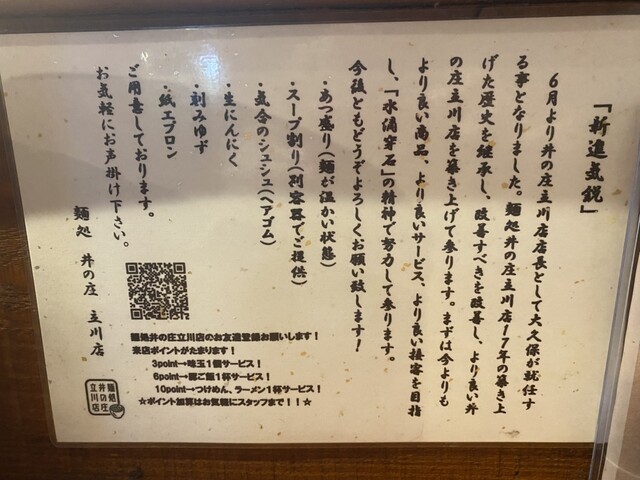 「新進気鋭」
６月より井の庄立川店店長として大久保が就任す
る事となりました。麺処井の庄立川店１７年の築き上
げた歴史を継承し、改善すべきを改善し、より良い井
の庄立川店を築き上げて参ります。まずは今よりも
より良い商品、より良いサービス、より良い接客を目指
し、「水滴穿石」の精神で努力して参ります。
今後ともどうぞよろしくお願い致します！
・あつ盛り（麺が温かい状態）
・スープ割り（別容器でご提供）
・気合のシュシュ（ヘアゴム）
・生にんにく
・刻みゆず
・紙エプロン
ご用意しております。
お気軽にお声掛け下さい。
麺処　井の庄　立川店
麺処井の庄立川店のお友達登録お願いします！
来店ポイントがたまります！
3point→味玉1個サービス！
6point→豚ご飯1杯サービス！
10point→つけめん、ラーメン1杯サービス！
☆ポイント加算はお気軽にスタッフまで！！☆
麺処
井の庄
立川店